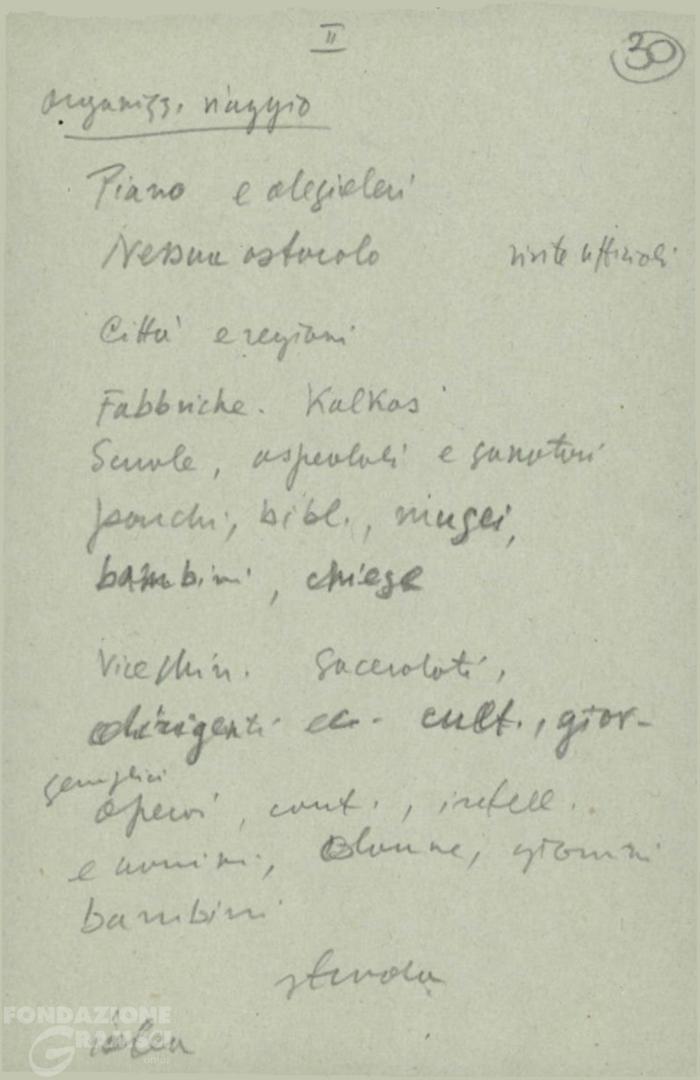 II
30
organizz. viaggio
Piano e desideri
Nessun ostacolo visite ufficiali
Città e regioni
Fabbriche. Kolkos
Scuole, ospedali e sanatori
parchi, bibl., musei,
bambini, chiese
Vice Min. Sacerdoti,
dirigenti ec. cult., gior-
semplici
operai, cont., intell.
e uomini, donne, giovani
bambini
strada
FONDAZIONE
GRAMSCI